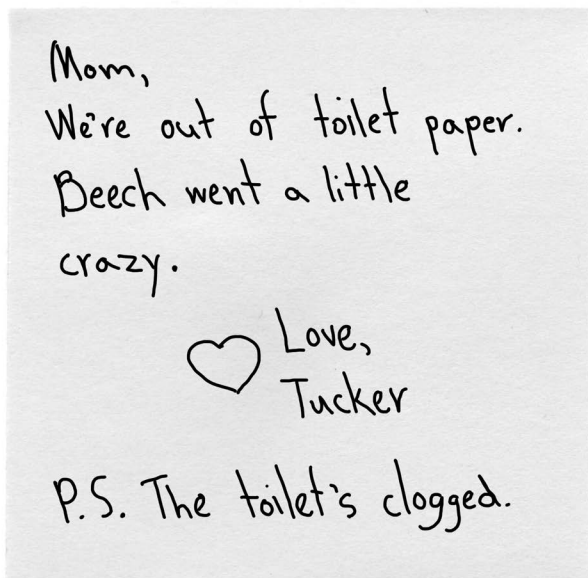 Mom,
We're out of toilet paper.
Beech went a little
crazy.
Love,
Tucker
P.S. The toilet's clogged.